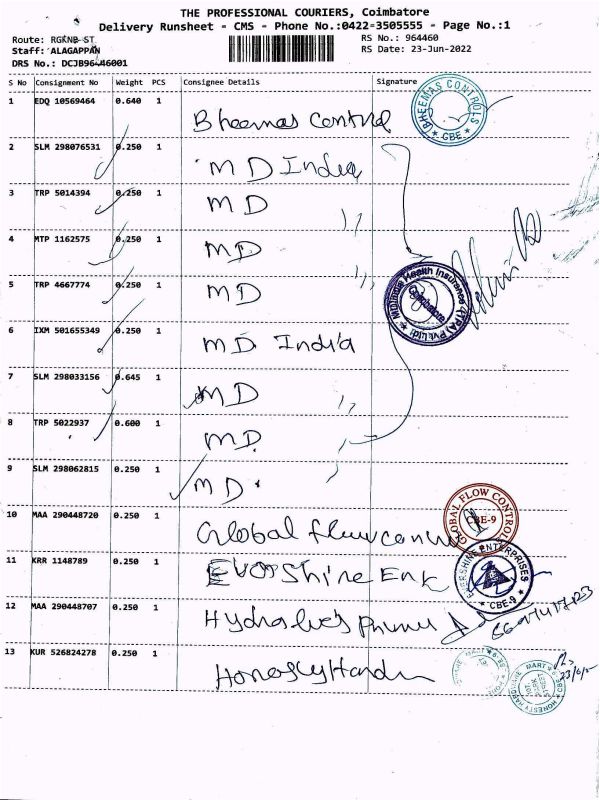 THE PROFESSIONAL COURIERS, Coimbatore
Delivery Runsheet - CMS - Phone No.:0422-3505555 - Page No.:1
Route: RGKNB ST
RS No.: 964460
Staff: ALAGAPPAN
RS Date: 23-Jun-2022
DRS No.: DCJB96446001
S No Consignment No Weight PCS Consignee Details Signature
1 EDQ 10569464 0.640 1 Bheemas Control
BHEEMAS CONTROLS
CBE
2 SLM 298076531 0.250 1 M D India
3 TRP 5014394 0.250 1 M D
4 MTP 1162575 0.250 1 M D
5 TRP 4667774 0.250 1 M D
MDIndia Health Insurance (TPA) Pvt Ltd
Coimbatore
6 IXM 501655349 0.250 1 M D India
7 SLM 298033156 0.645 1 M D
8 TRP 5022937 0.600 1 M D
9 SLM 298062815 0.250 1 M D
10 MAA 290448720 0.250 1 Global Flow
GLOBAL FLOW CONTROL
CBE-9
11 KRR 1148789 0.250 1 Evershine Ent
EVERSHINE ENTERPRISES
CBE-9
12 MAA 290448707 0.250 1
13 KUR 526824278 0.250 1
MART
HONESTY HARDWARE MART